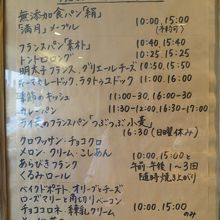 無添加食パン「絹」 10:00, 15:00
「満月」メープル
フランスパン「素朴」 10:40, 15:40
トントロロング 10:25, 16:25
明太子フランス、グリエールチーズ 10:50, 16:50
ラタトゥユドッグ 11:00. 16:00
季節のキッシュ 11:00 ~
カレーパン 12:00. 14:30~17:00
ライ麦のフランスパン「つぶつぶ小麦」
16:30 (日曜休み)
クロワッサン・チョコクロ 10:00, 15:00
メロン・クリーム・こしあん
あらびきフランク 午前・午後 1~3回
くるみロール 随時焼き上がり
ベイクドポテト オリーブとチーズ
ローズマリーと肩切りベーコン
チョココロネ 練乳クリーム